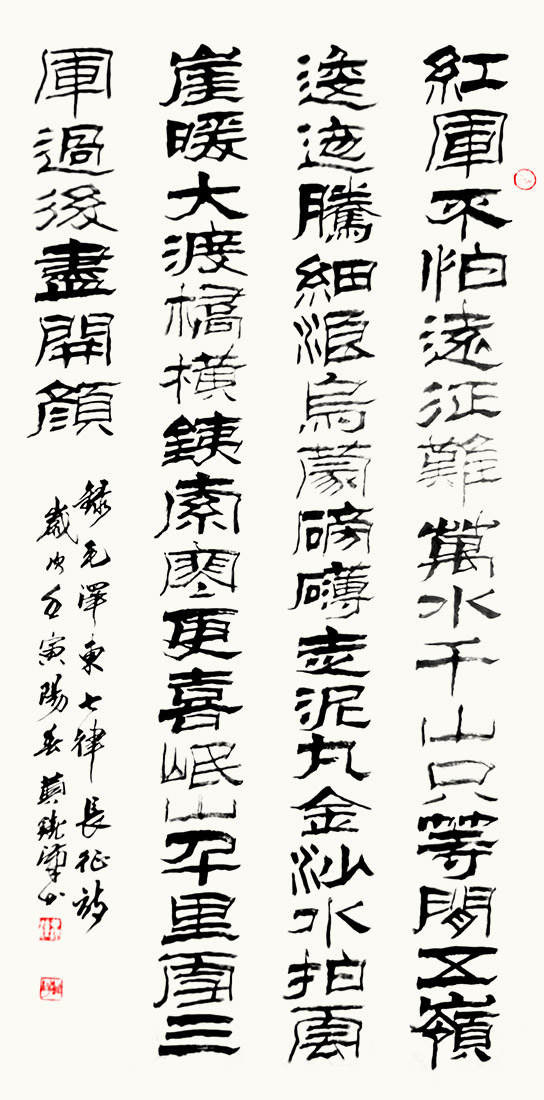 紅軍不怕遠征難萬水千山只等閒五嶺
逶迤騰細浪烏蒙磅礴走泥丸金沙水拍雲
崖暖大渡橋橫銕索寒更喜岷山千里雪三
軍過後盡開顏
錄毛澤東七律長征詩
歲次壬寅陽春黃